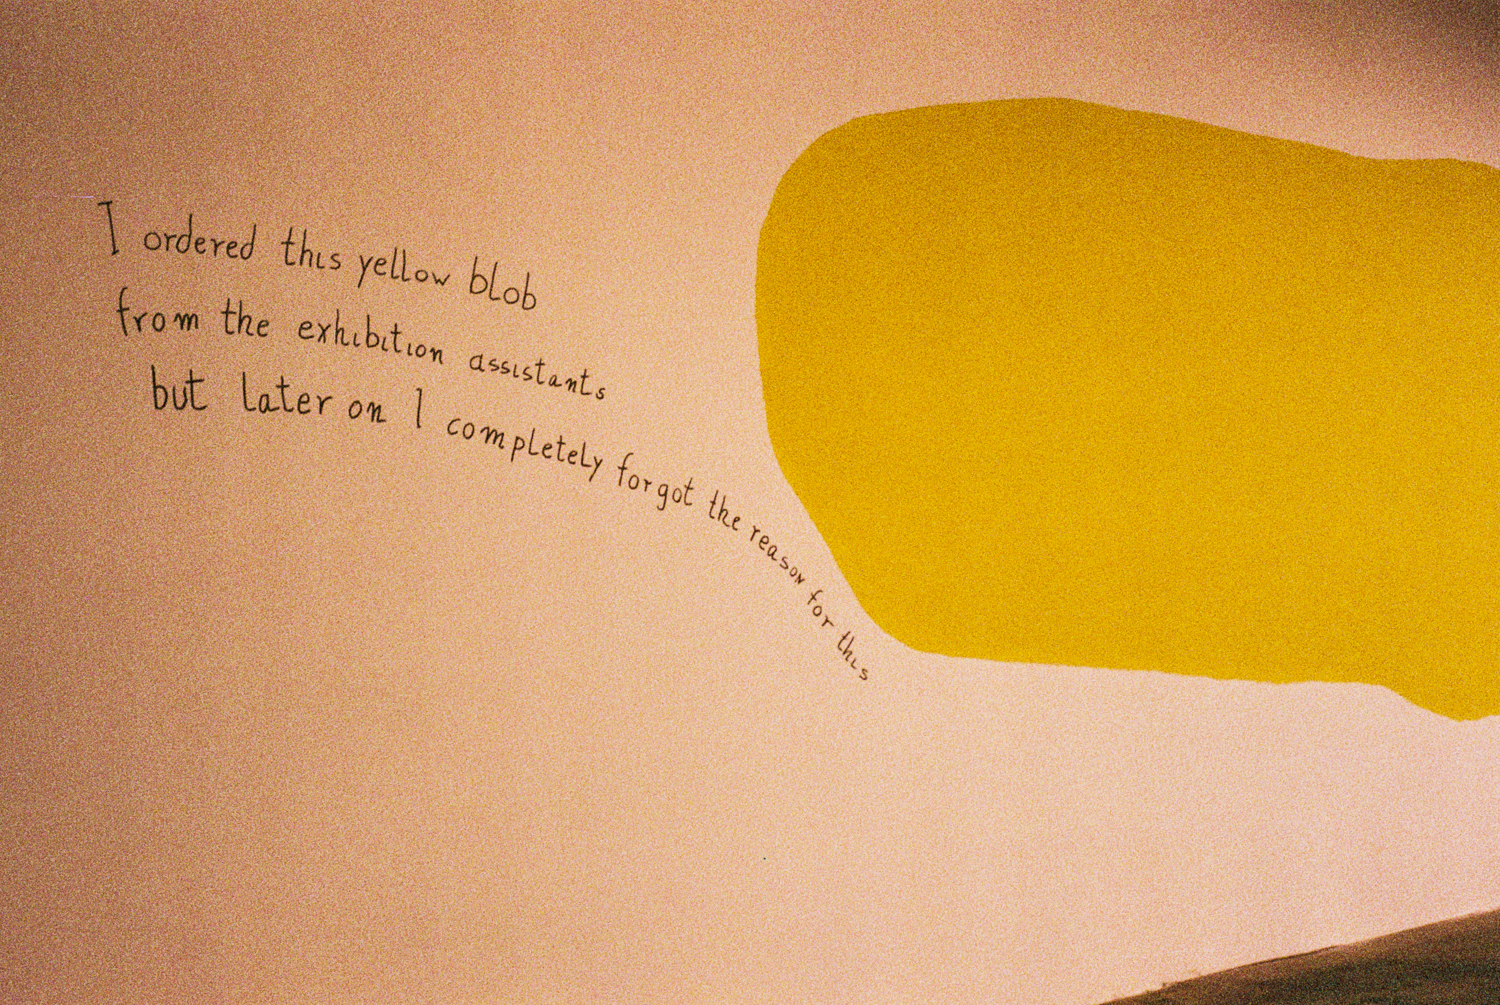 I ordered this yellow blob
from the exhibition assistants
but later on I completely forgot the reason for this